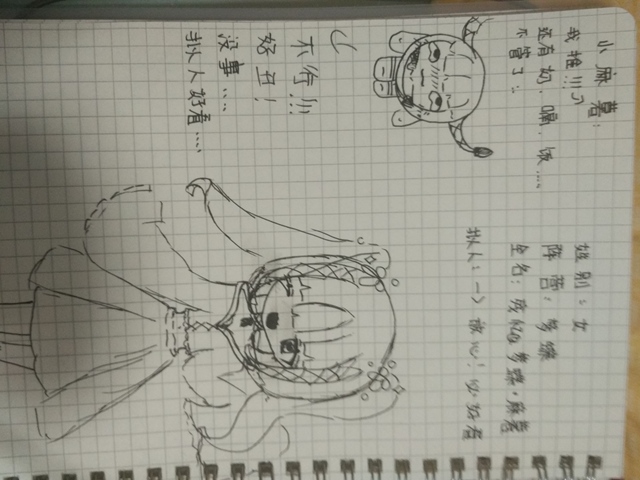 小麻薯：
我推!!!
还有奶、嗝、饭....
不管了：
不行!!!
好丑！
没事....
拟人好看....
性别：女
阵营：梦蝶
全名：梦蝶·麻薯
拟人：一>
好看